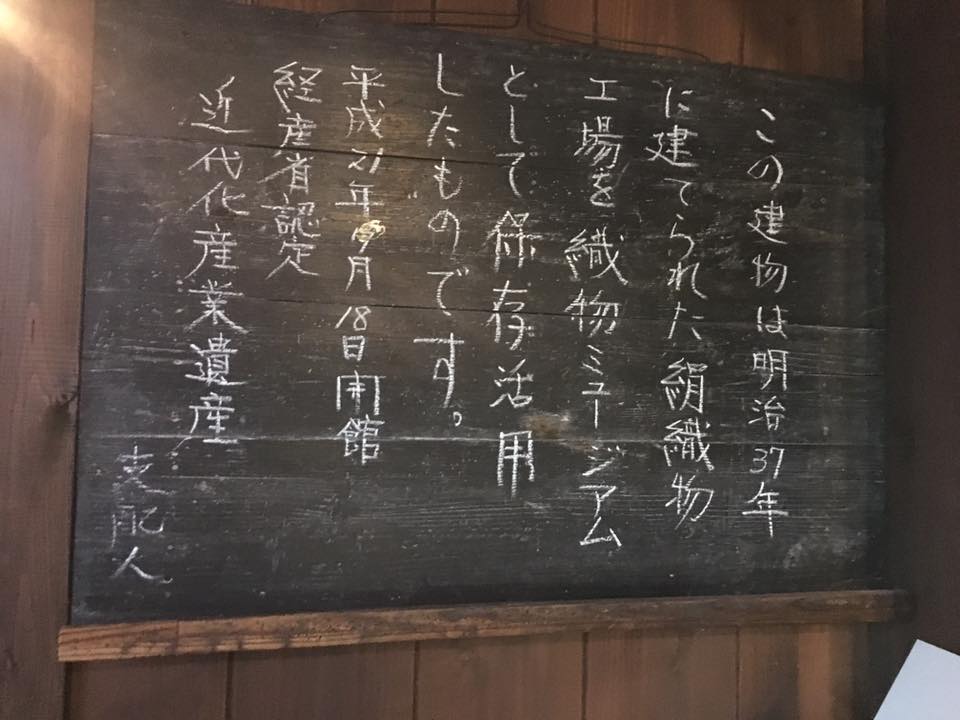 この建物は明治37年
に建てられた絹織物
工場を織物ミュージアム
として保存活用
したものです。
平成21年9月18日開館
経産省認定
近代化産業遺産
支配人